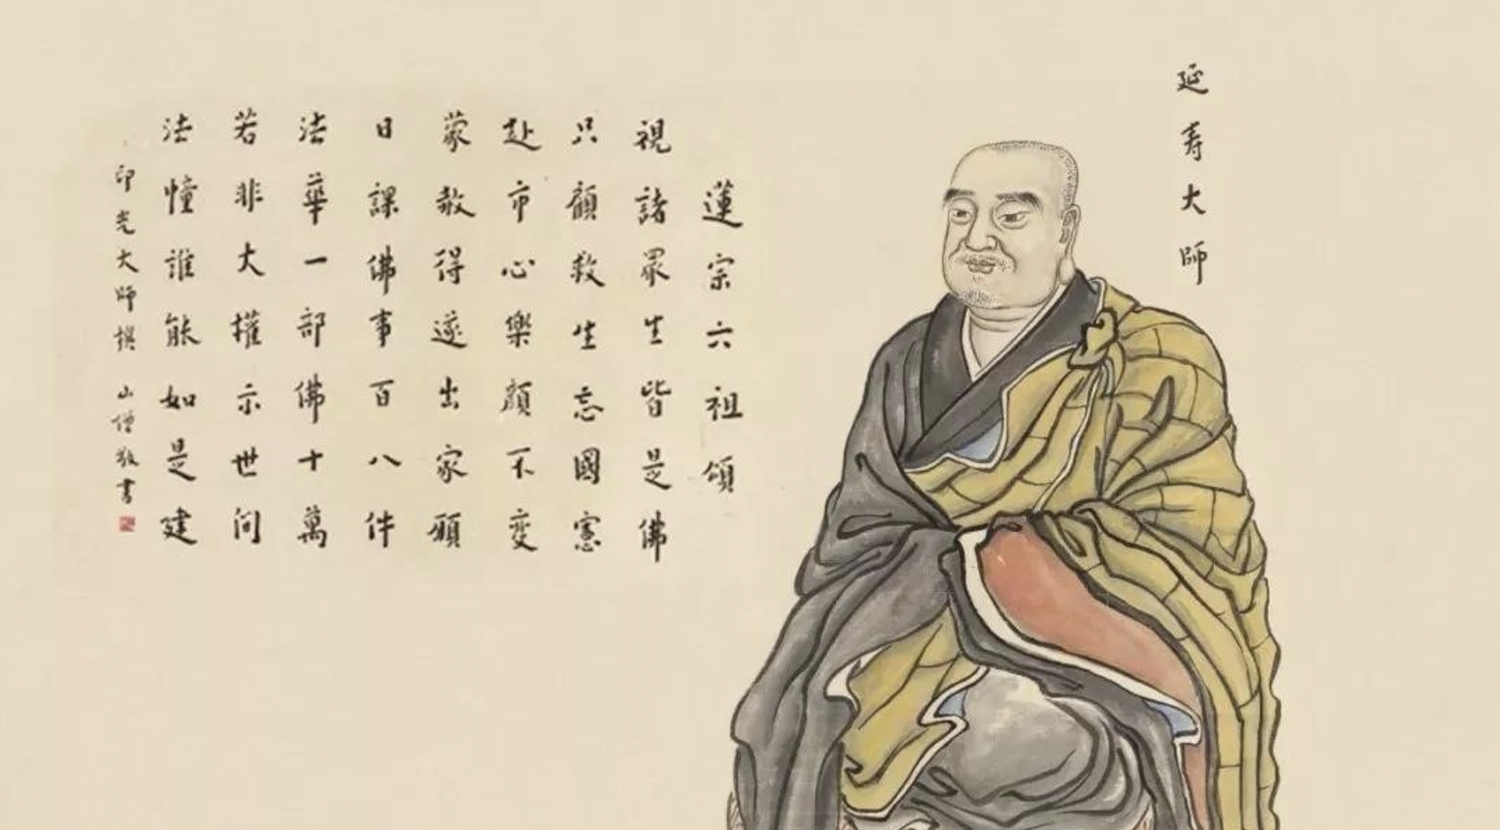 延寿大師
蓮宗六祖頌
視諸眾生皆是佛
只顧救生忘國憲
赴市心樂顏不变
蒙赦得遂出家願
日課佛事百八件
法華一部佛十萬
若非大權示世间
法幢誰能如是建
印光大師撰 山僧敬書